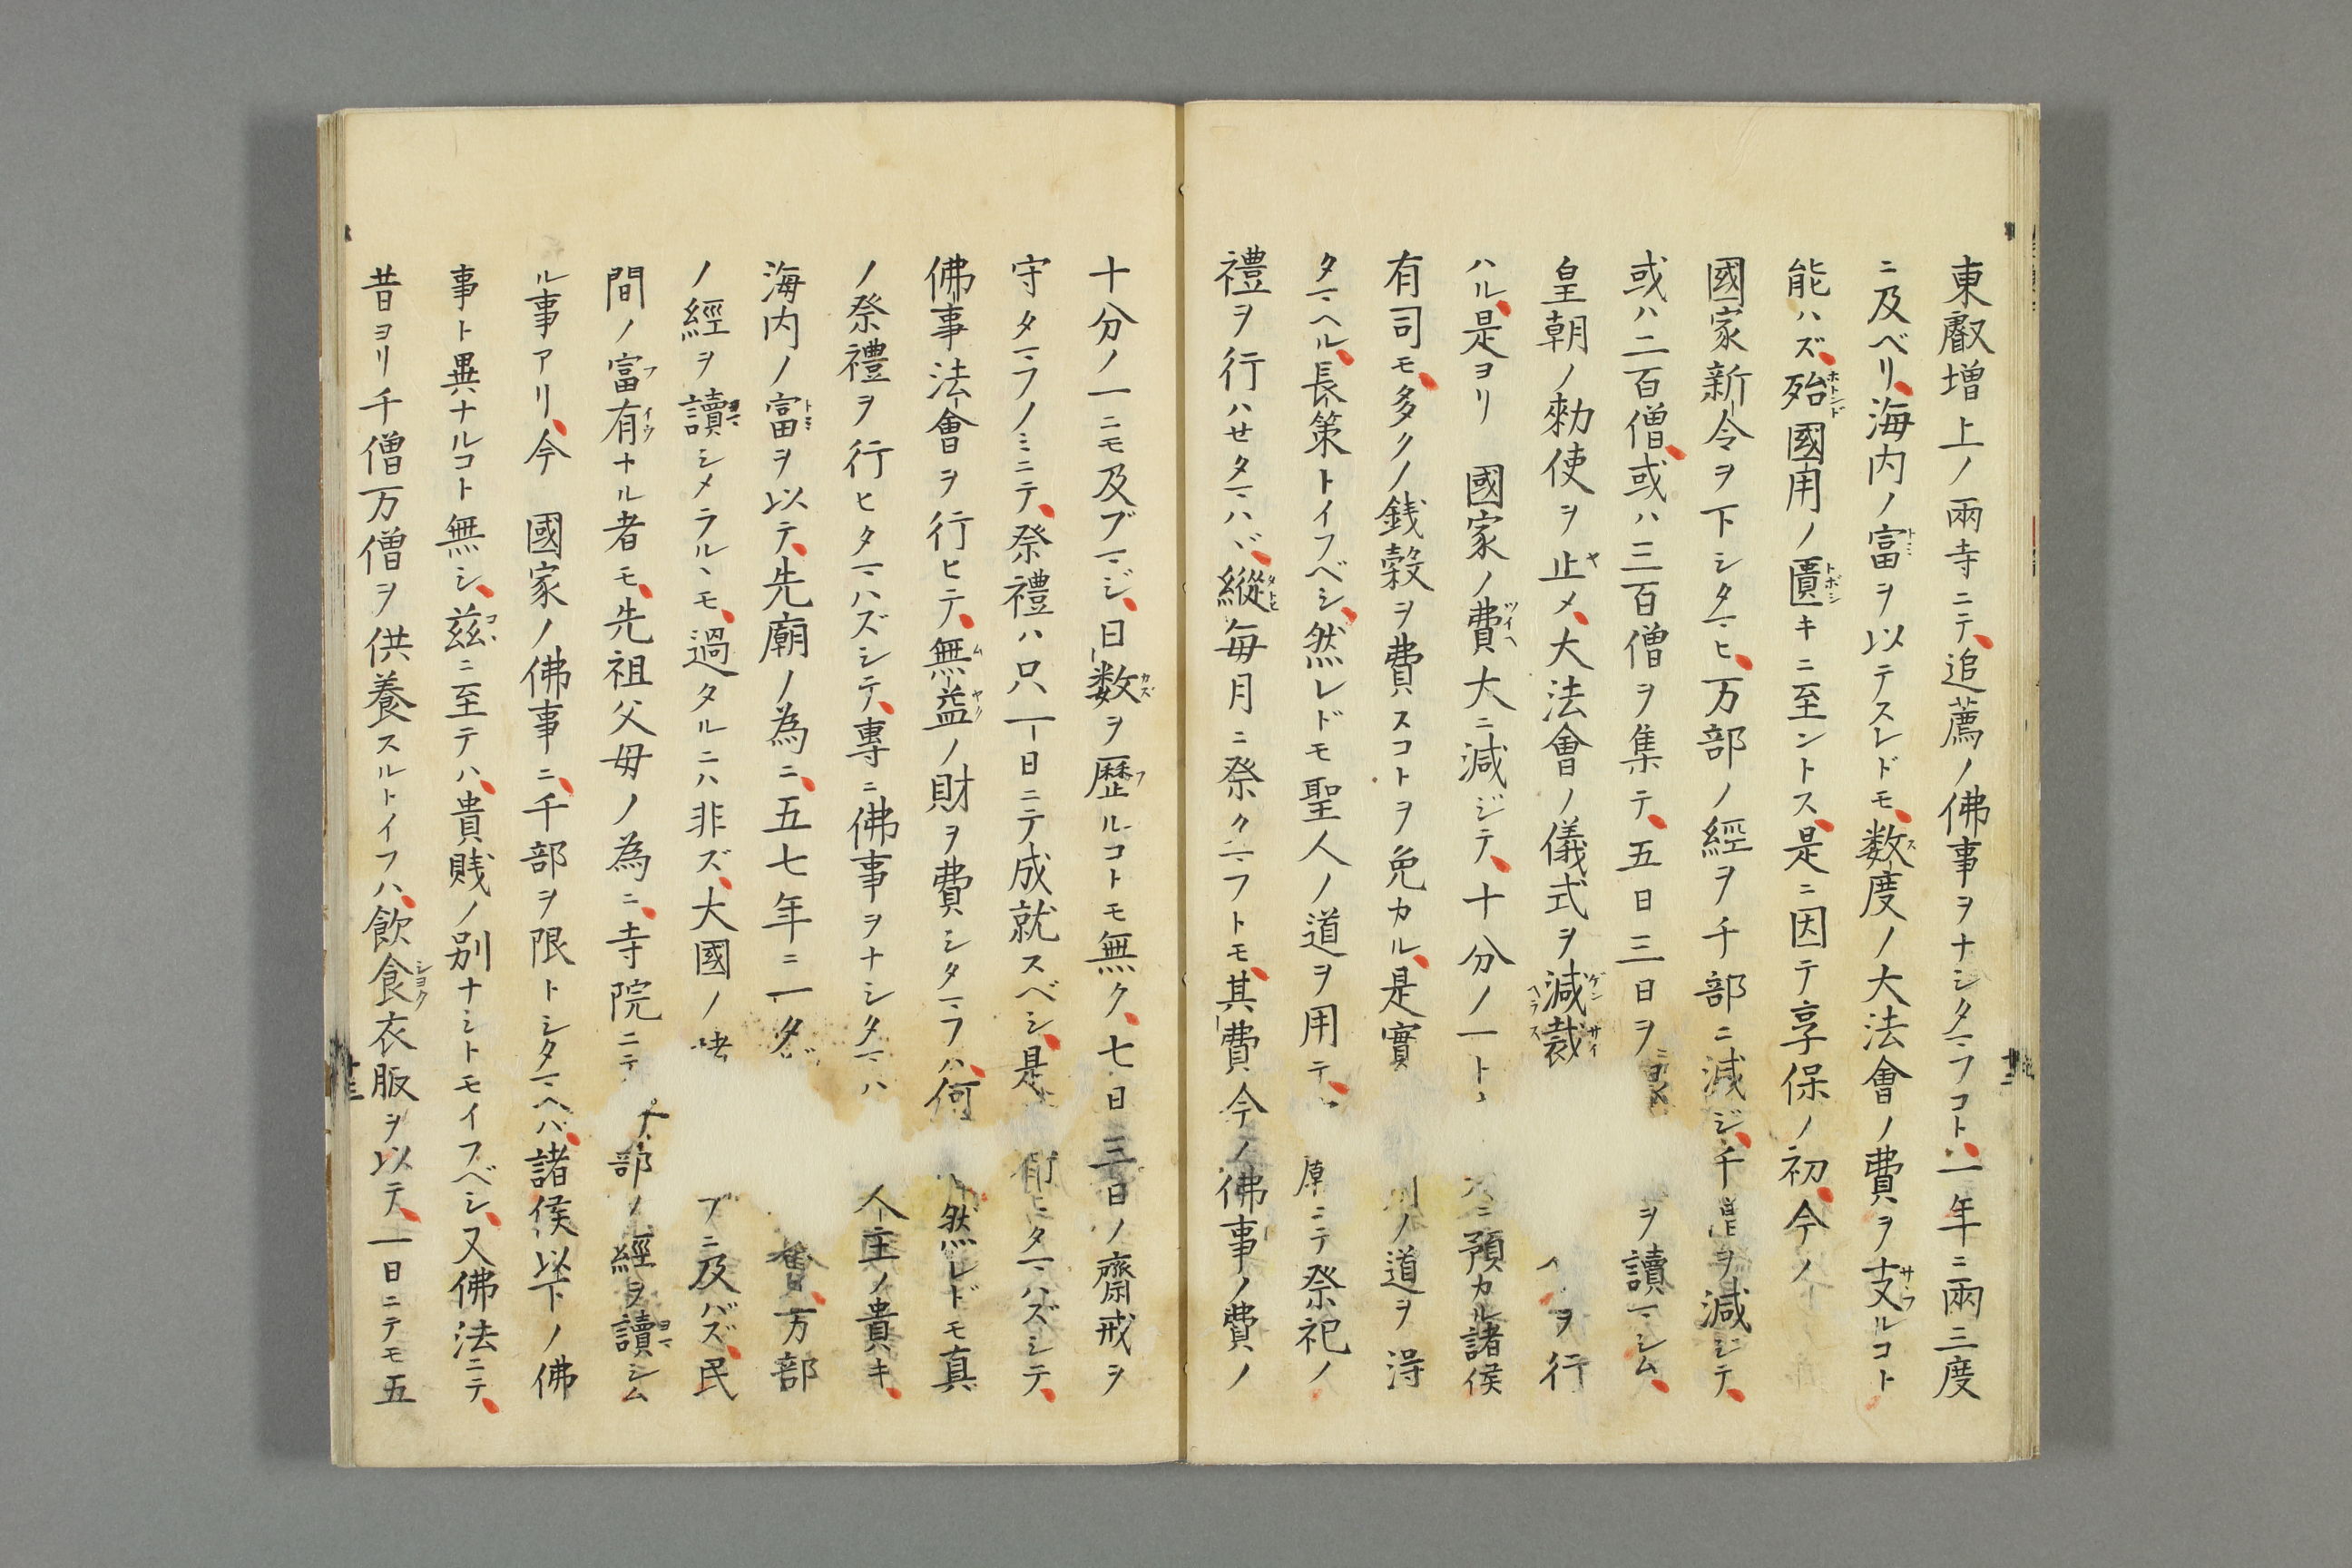 東叡増上ノ兩寺ニテ、追薦ノ佛事ヲナシタマフコト、一年ニ兩三度
ニ及ベリ、海内ノ富ヲ以テスレドモ、数度ノ大法會ノ費ヲ支ルコト
能ハズ、殆國用ノ匱キニ至ントス、是ニ因テ享保ノ初、今ノ
國家新令ヲ下シタマヒ、万部ノ經ヲ千部ニ減ジ、千僧ヲ減ジテ、
或ハ二百僧、或ハ三百僧ヲ集テ、五日三日ヲ ヲ讀マシム、
皇朝ノ勅使ヲ止メ、大法會ノ儀式ヲ減裁 ヲ行
ハル、是ヨリ 國家ノ費大ニ減ジテ、十分ノ一ト ニ預カル諸侯
有司モ、多クノ銭穀ヲ費スコトヲ免カル、是實 ノ道ヲ得
タマヘル、長策トイフベシ、然レドモ聖人ノ道ヲ用テ、 ニテ祭祀ノ
禮ヲ行ハセタマハヾ、縱毎月ニ祭タマフトモ、其費今ノ佛事ノ費ノ
十分ノ一ニモ及ブマジ、日数ヲ歴ルコトモ無ク、七日三日ノ齋戒ヲ
守タマフノミニテ、祭禮ハ只一日ニテ成就スベシ、是 タマハズシテ、
佛事法會ヲ行ヒテ、無益ノ財ヲ費シタマフハ、何 然レドモ真
ノ祭禮ヲ行ヒタマハズシテ、專ニ佛事ヲナシタマハ 人主ノ貴キ、
海内ノ富ヲ以テ、先廟ノ為ニ、五七年ニ一タビ 万部
ノ經ヲ讀シメラルヽモ、過タルニハ非ズ、大國ノ ブニ及バズ、民
間ノ富有ナル者モ、先祖父母ノ為ニ、寺院ニテ 部ノ經ヲ讀シム
ル事アリ、今 國家ノ佛事ニ、千部ヲ限トシタマヘバ、諸侯以下ノ佛
事ト異ナルコト無シ、茲ニ至テハ、貴賎ノ別ナシトモイフベシ、又佛法ニテ、
昔ヨリ千僧万僧ヲ供養スルトイフハ、飲食衣服ヲ以テ、一日ニテモ五